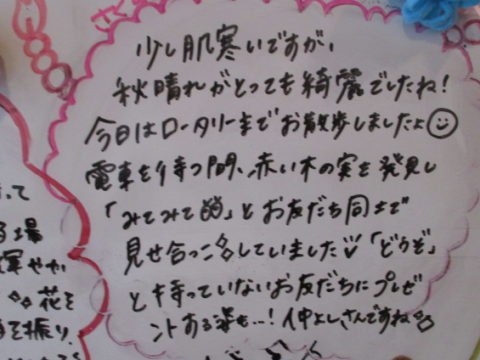 少し肌寒いですが、
秋晴れがとっても綺麗でしたね!
今日はロータリーまでお散歩しましたよ
電車を待つ間、赤い木の実を発見し
「みてみて」とお友だち同士で
見せ合っこしていました「どうぞ」
と持っていないお友だちにプレゼ
ントする姿も…!仲よしさんですね
って
る場
輝やか
花を
を振り